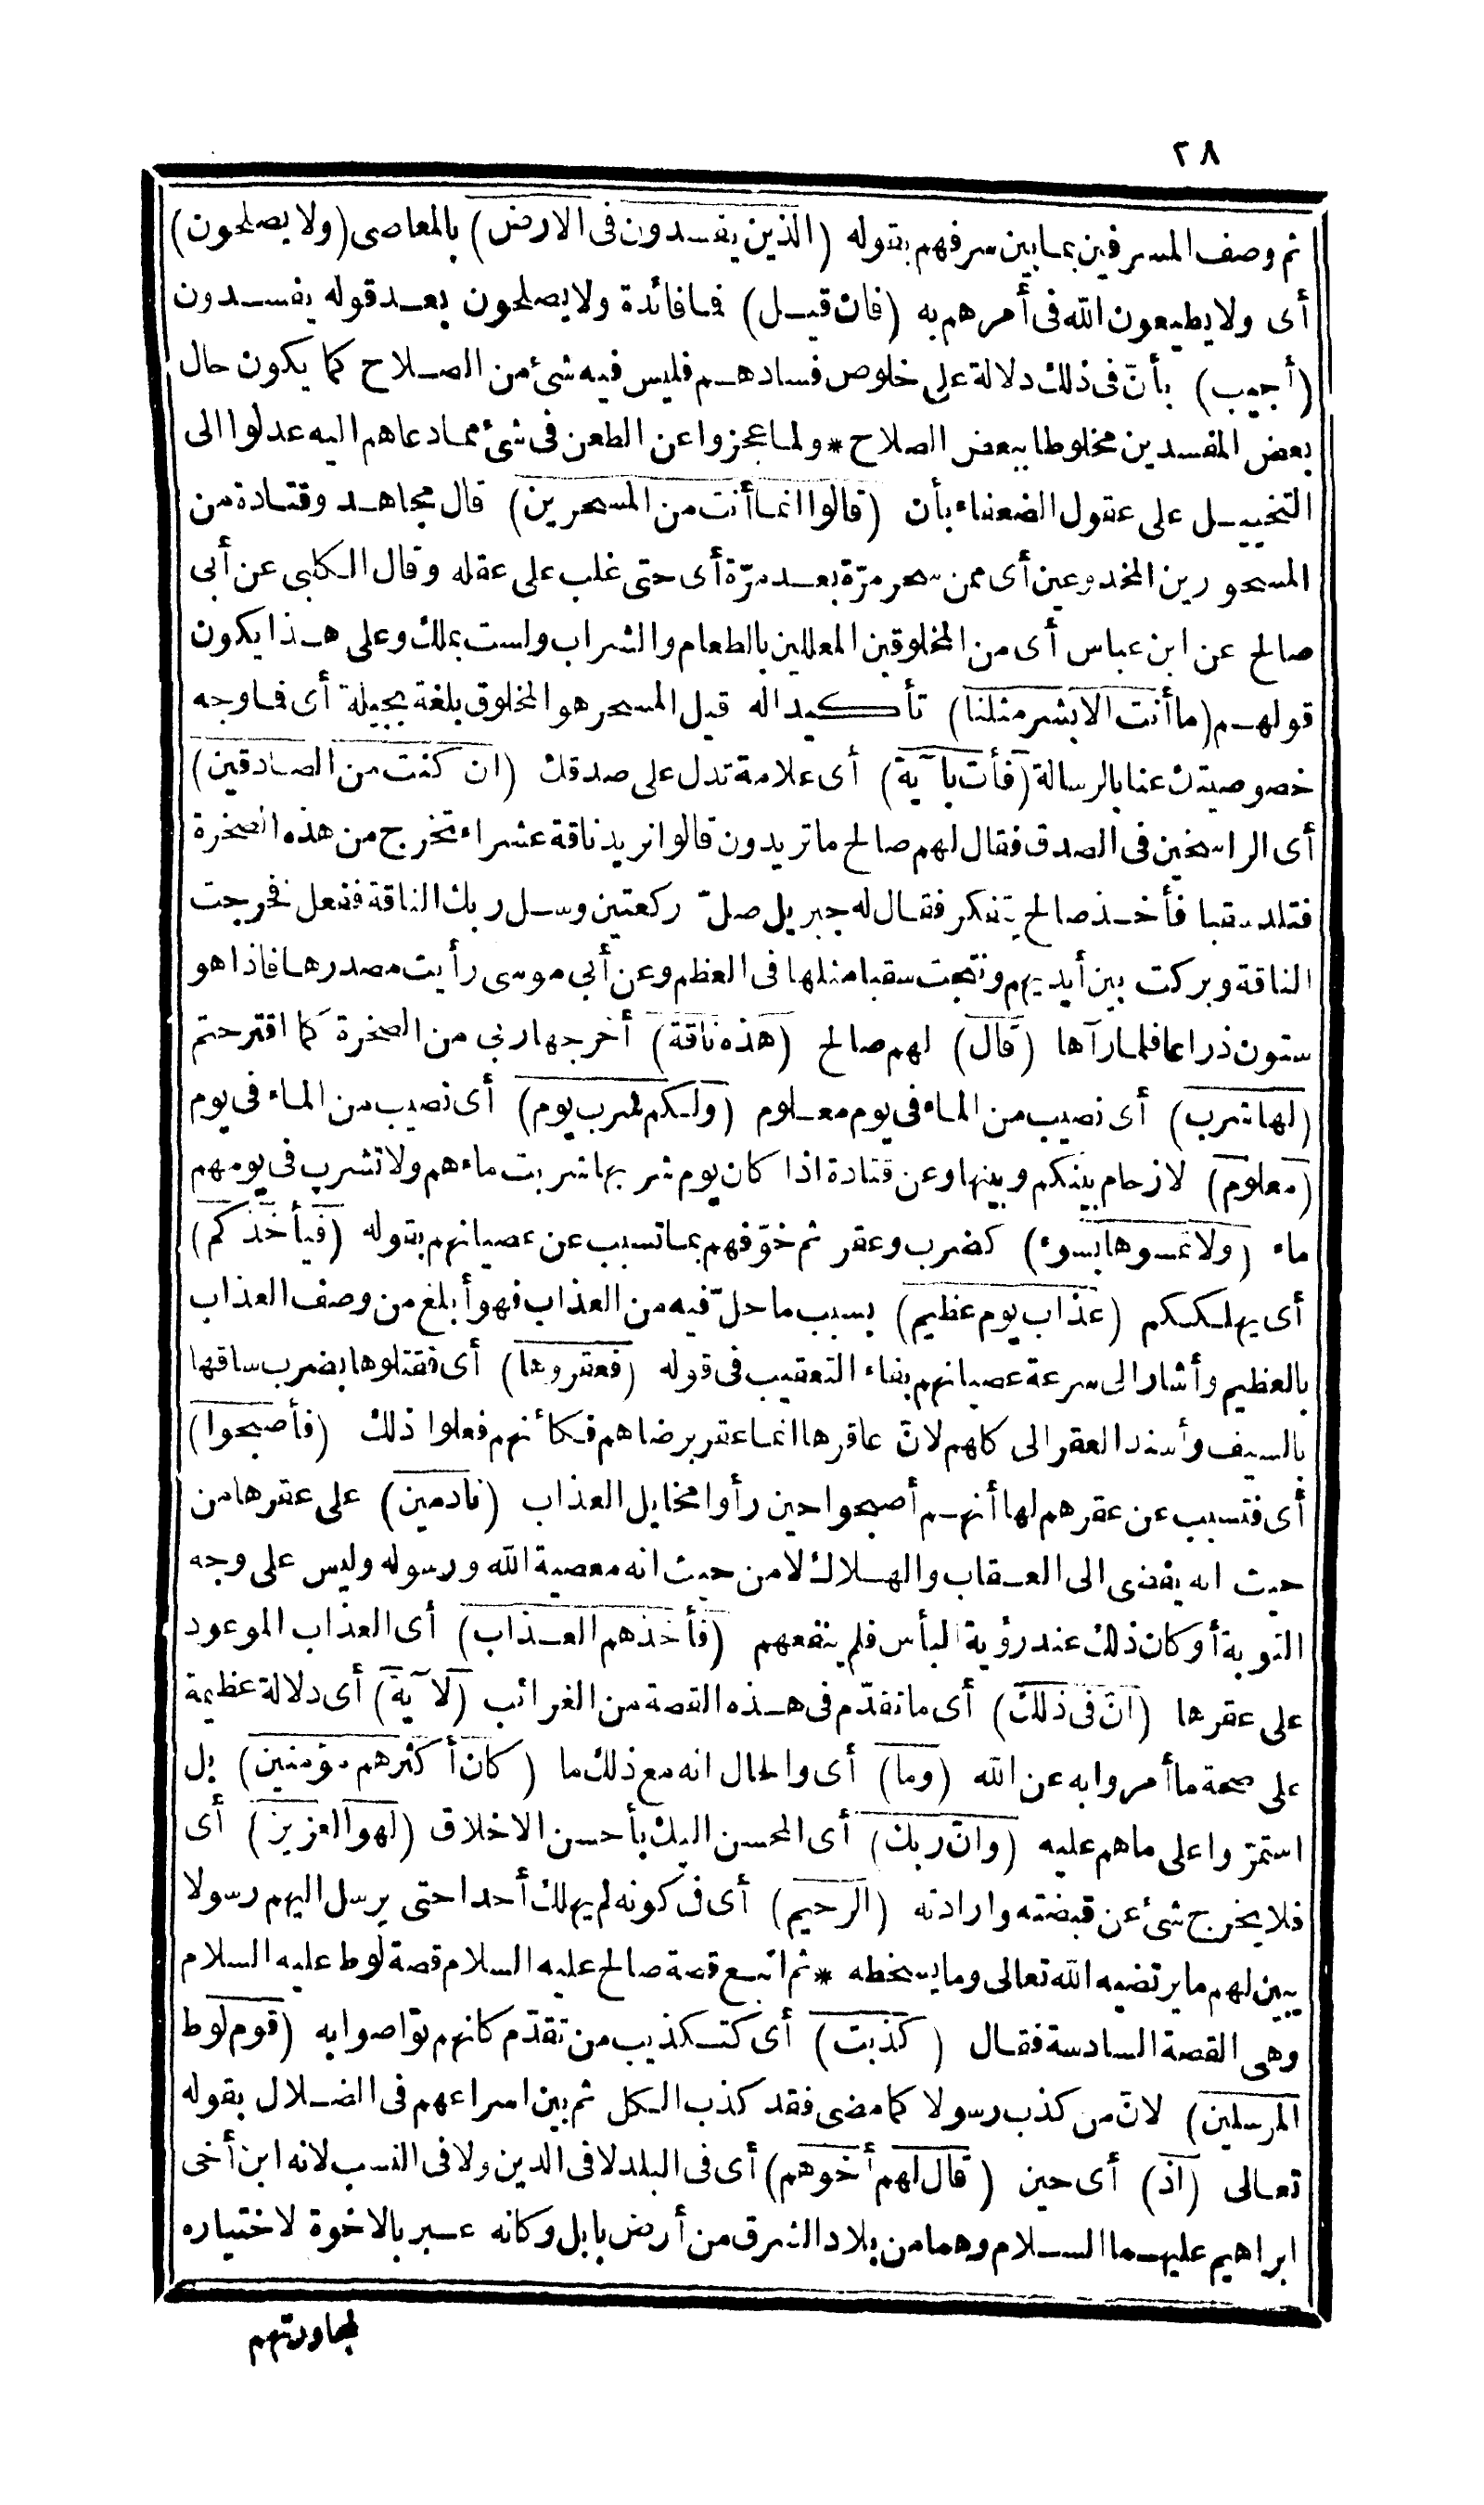 ٢٨
ثم وصف المسرفين بما بين سرفهم بقوله (الذين يفسدون فى الارض) بالمعاصى (ولا يصلحون)
أى ولا يطيعون الله فى أمرهم به (فان قيل) فما فائدة ولا يصلحون بعد قوله يفسدون
(أجيب) بأنّ فى ذلك دلالة على خلوص فسادهم فليس فيه شئ من الصلاح كما يكون حال
بعض المفسدين مخلوطا ببعض الصلاح * ولما عجزوا عن الطعن فى شئ مما دعاهم اليه عدلوا الى
التخييل على عقول الضعفاء بأن (قالوا انما أنت من المسحرين) قال مجاهد وقتادة من
المسحورين المخدوعين أى ممن سحر مرّة بعد مرّة أى حتى غلب على عقله وقال الكلبى عن أبى
صالح عن ابن عباس أى من المخلوقين المعللين بالطعام والشراب ولست بملك وعلى هذا يكون
قولهم (ما أنت الا بشر مثلنا) تأكيدا له قيل المسحر هو المخلوق بلغة بجيلة أى فما وجه
خصوصيتك عنا بالرسالة (فأت بآية) أى علامة تدل على صدقك (ان كنت من الصادقين)
أى الراسخين فى الصدق فقال لهم صالح ما تريدون قالوا نريد ناقة عشراء تخرج من هذه الصخرة
فتلد سقبا فأخذ صالح يتفكر فقال له جبريل صلّ ركعتين وسل ربك الناقة ففعل فخرجت
الناقة وبركت بين أيديهم ونتجت سقبا مثلها فى العظم وعن أبى موسى رأيت مصدرها فاذا هو
ستون ذراعا فلما رآها (قال) لهم صالح (هذه ناقة) أخرجها ربى من الصخرة كما اقترحتم
(لها شرب) أى نصيب من الماء فى يوم معلوم (ولكم شرب يوم) أى نصيب من الماء فى يوم
(معلوم) لا زحام بينكم وبينها وعن قتادة اذا كان يوم شربها شربت ماءهم ولا تشرب فى يومهم
ماء (ولا تمسوها بسوء) كضرب وعقر ثم خوّفهم بما تسبب عن عصيانهم بقوله (فيأخذكم)
أى يهلككم (عذاب يوم عظيم) بسبب ما حلّ فيه من العذاب فهو أبلغ من وصف العذاب
بالعظيم وأشار الى سرعة عصيانهم بفاء التعقيب فى قوله (فعقروها) أى فقتلوها بضرب ساقها
بالسيف وأسند العقر الى كلهم لانّ عاقرها انما عقر برضاهم فكأنهم فعلوا ذلك (فأصبحوا)
أى فتسبب عن عقرهم لها أنهم أصبحوا حين رأوا مخايل العذاب (نادمين) على عقرها من
حيث انه يفضى الى العقاب والهلاك لا من حيث انه معصية الله ورسوله وليس على وجه
التوبة أو كان ذلك عند رؤية البأس فلم ينفعهم (فأخذهم العذاب) أى العذاب الموعود
على عقرها (انّ فى ذلك) أى ما تقدّم فى هذه القصة من الغرائب (لآية) أى دلالة عظيمة
على صحة ما أمروا به عن الله (وما) أى والحال انه مع ذلك ما (كان أكثرهم مؤمنين) بل
استمرّوا على ما هم عليه (وانّ ربك) أى المحسن اليك بأحسن الاخلاق (لهو العزيز) أى
فلا يخرج شئ عن قبضته وارادته (الرحيم) أى فى كونه لم يهلك أحدا حتى يرسل اليهم رسولا
يبين لهم ما يرتضيه الله تعالى وما يسخطه * ثم اتبع قصة صالح عليه السلام قصة لوط عليه السلام
وهى القصة السادسة فقال (كذبت) أى كتكذيب من تقدّم كانهم تواصوا به (قوم لوط
المرسلين) لانّ من كذب رسولا كما مضى فقد كذب الكل ثم بين اسراعهم فى الضلال بقوله
تعالى (اذ) أى حين (قال لهم أخوهم) أى فى البلد لا فى الدين ولا فى النسب لانه ابن أخى
ابراهيم عليهما السلام وهما من بلاد الشرق من أرض بابل وكانه عبر بالاخوة لاختياره
لمجاورتهم